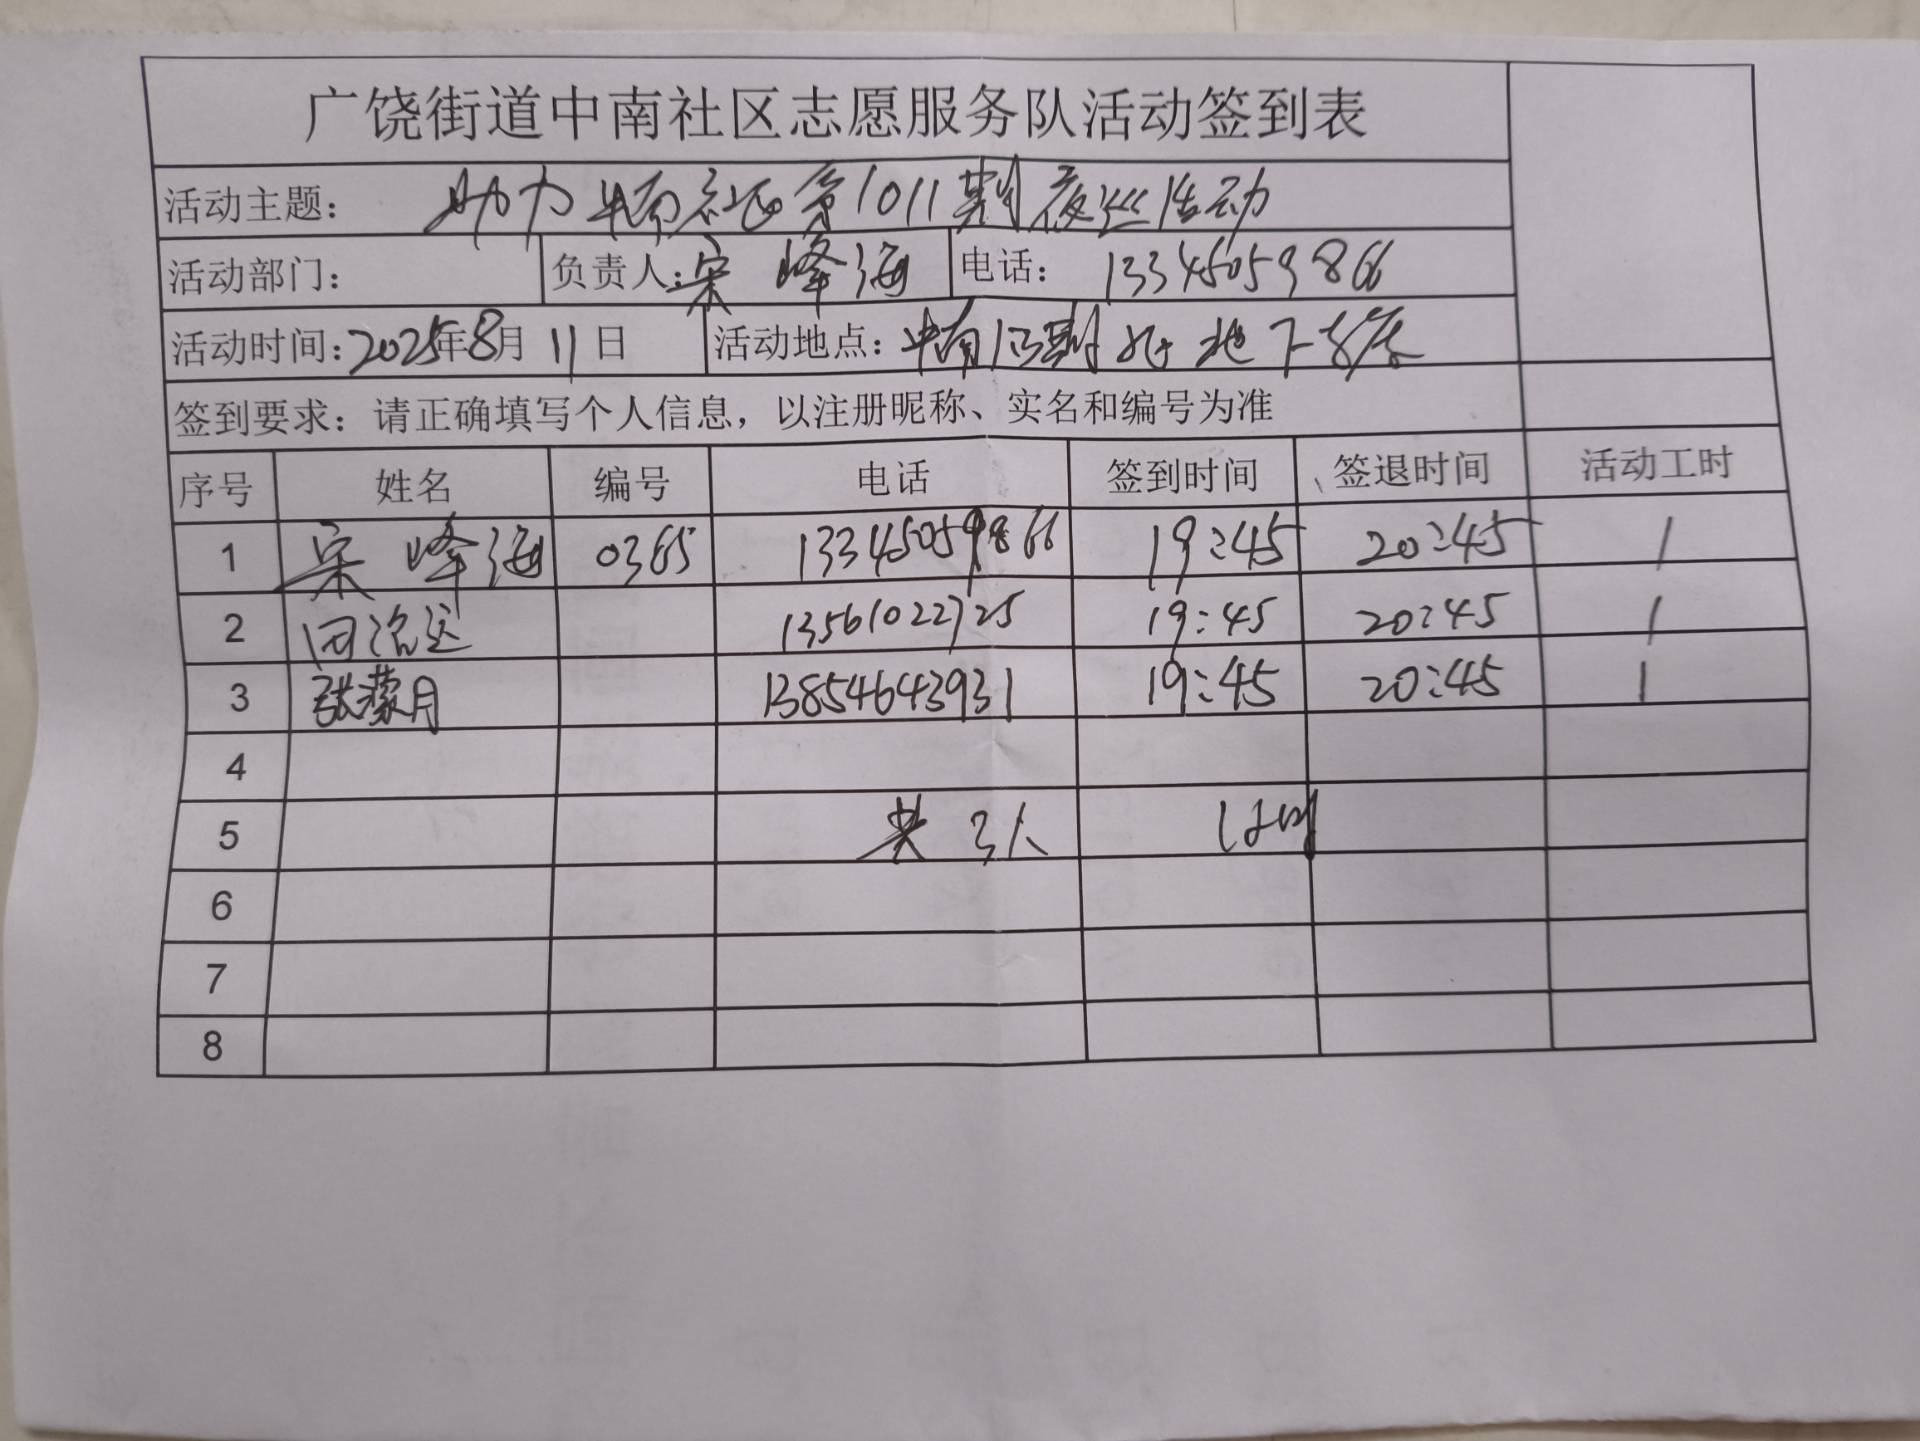 广饶街道中南社区志愿服务队活动签到表
活动主题： 助力中南社区第1011期夜巡活动
活动部门： 负责人：宋峰海 电话：13345059866
活动时间：2025年8月11日 活动地点：中南 期 地下车库
签到要求：请正确填写个人信息，以注册昵称、实名和编号为准
序号 姓名 编号 电话 签到时间 签退时间 活动工时
1 宋峰海 0365 13345059866 19:45 20:45 1
2 田治运 13561022725 19:45 20:45 1
3 张蒙月 13854643931 19:45 20:45 1
4
5 共3人
6
7
8